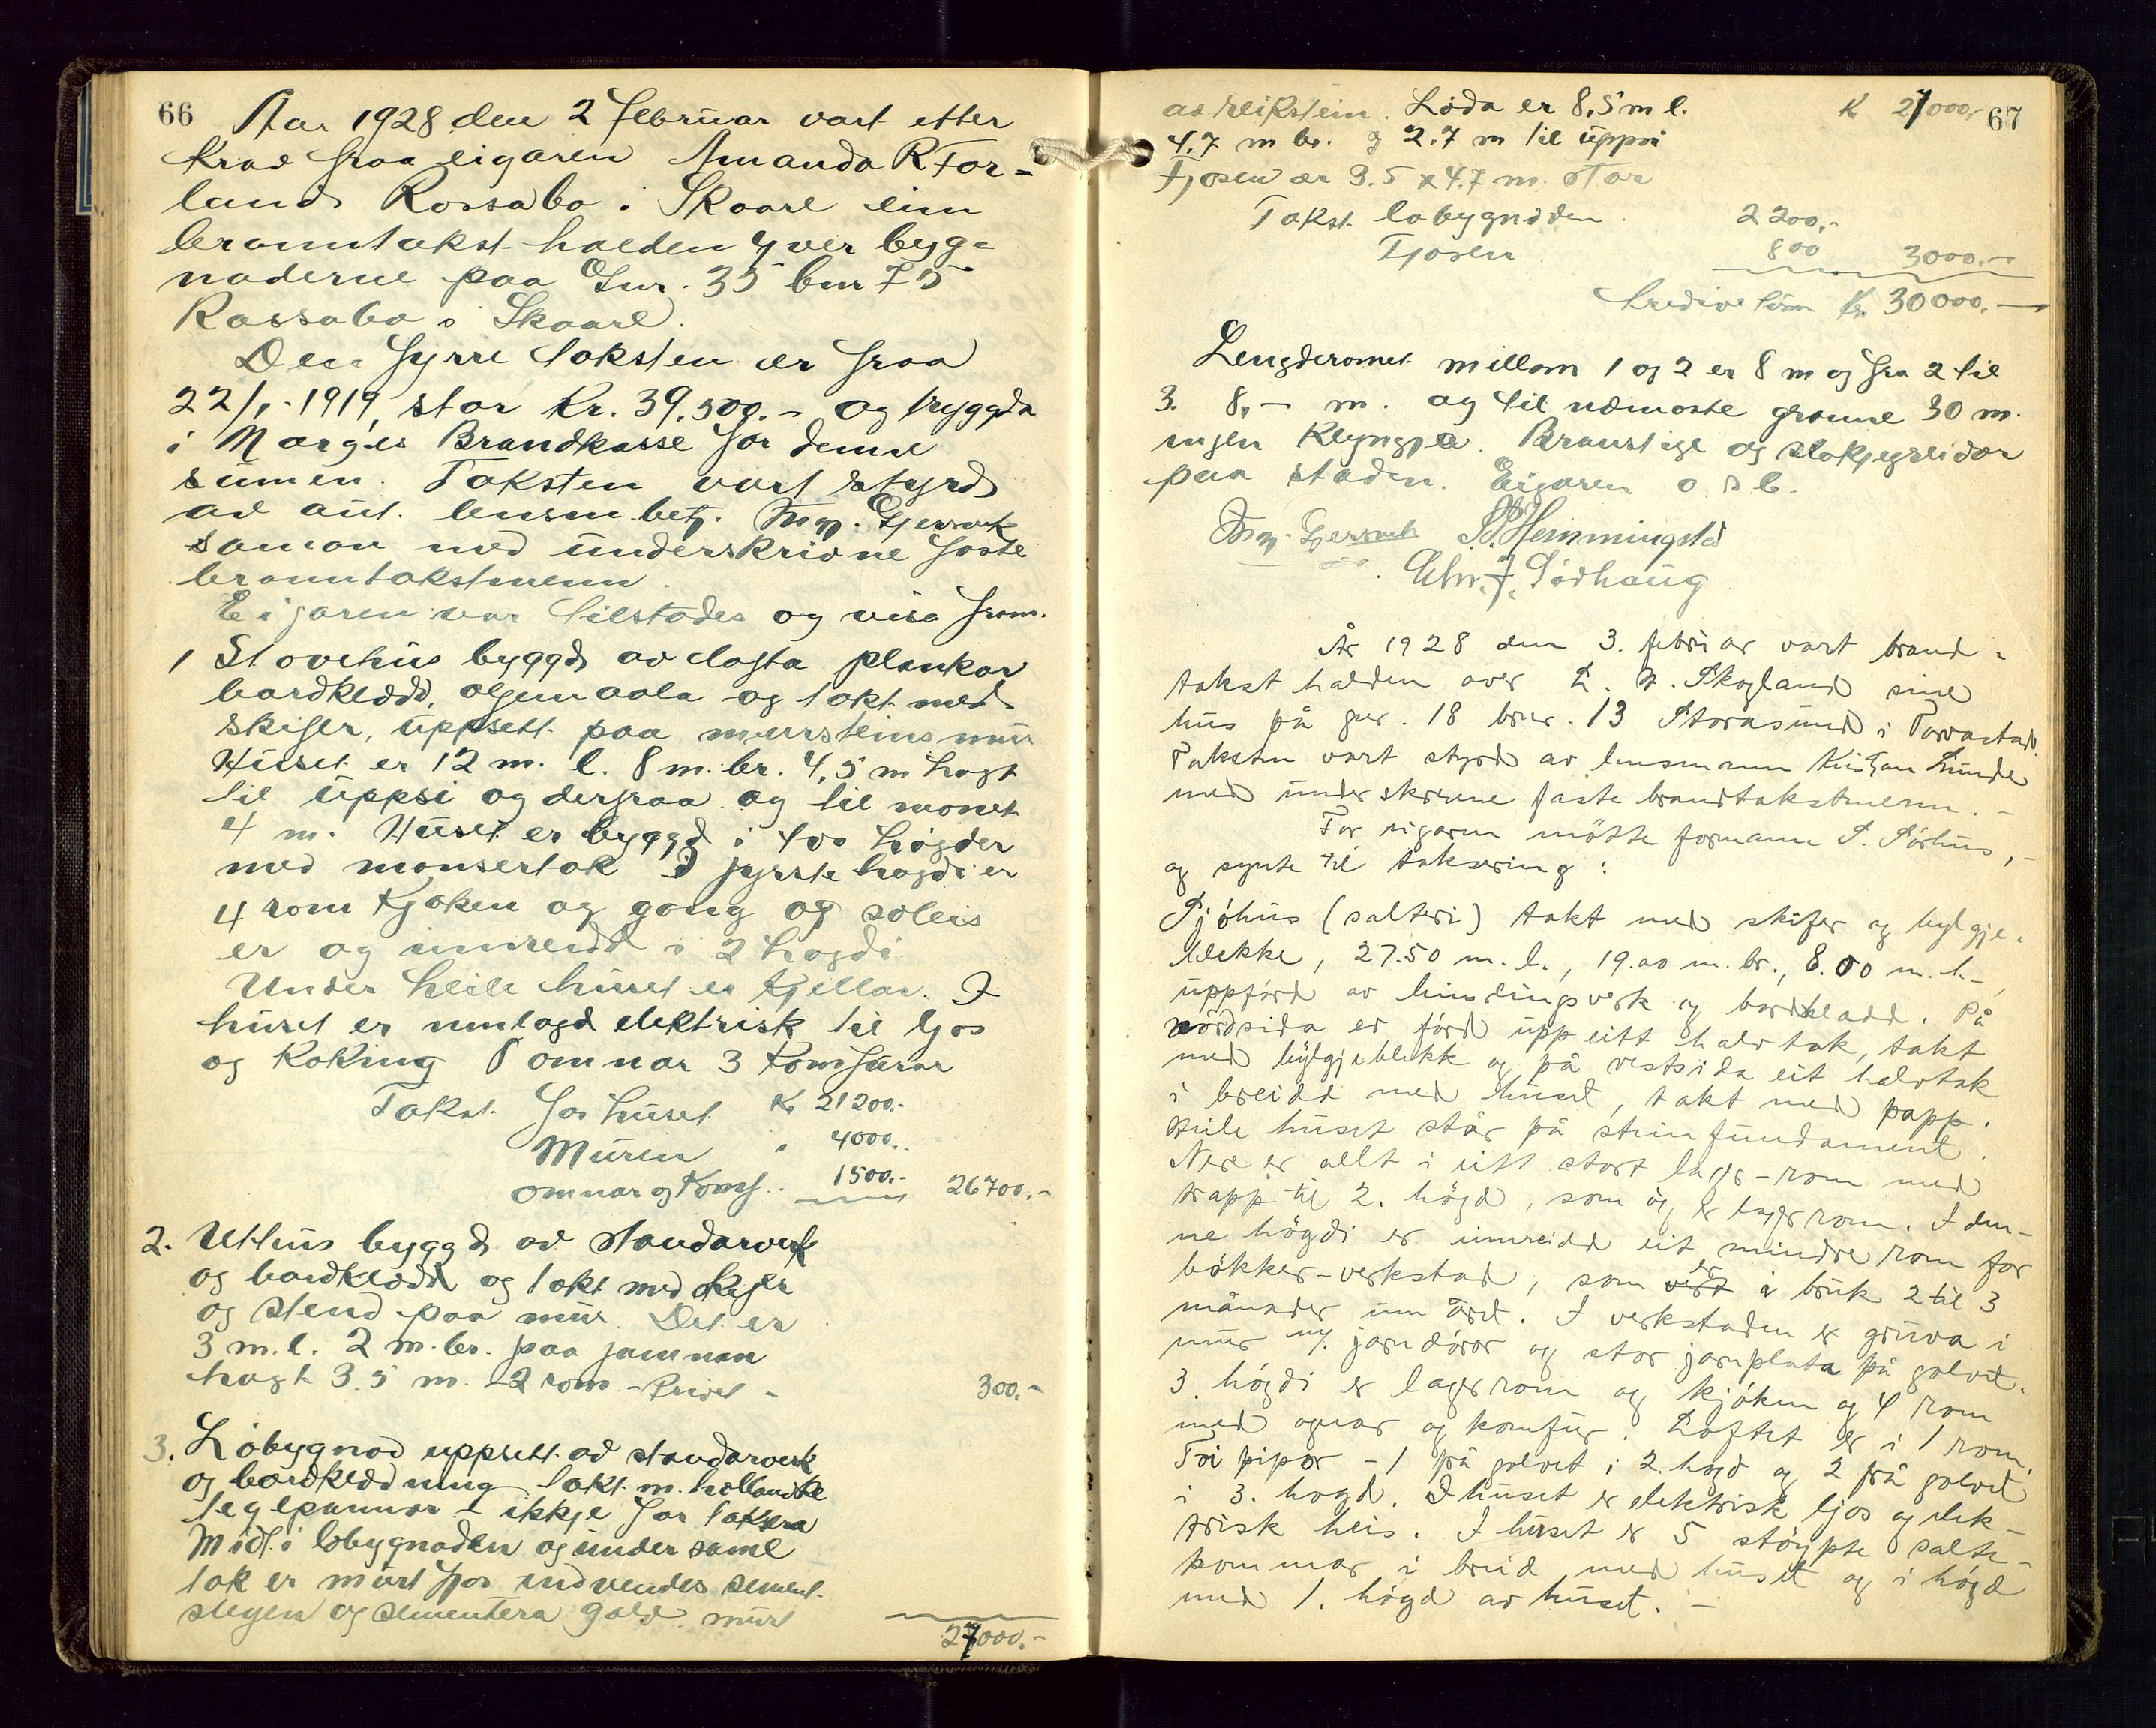 66
Aar 1928 den 2 februar vart etter
krav fraa eigaren Amanda R For-
land Rossabø i Skaare ein
branntakst halden yver byg-
naderne paa Gnr. 35 bnr 75
Rossabø i Skaare.
Den fyrre taksten er fraa
22/1-1919, stor Kr. 39.500.- og tryggda
i Norges Brandkasse for denne
sumen. Taksten vart styrd
av aut. lensm.betj. Mgn. Gjersvik
saman med underskrivne faste
branntakstmenn.
Eigaren var tilstades og visa fram.
1 Stovehus byggd av lafta plankar
bordklædd, oljemaala og takt med
skifer, uppsett paa mursteinsmur
Huset er 12 m. l. 8 m. br. 4,5 m høgt
til uppsi og derfraa og til mønet
4 m. Huset er byggd i tvo høgder
med mansertak I fyrste høgdi er
4 rom kjøken og gong og soleis
er og innreidd i 2 høgdi.
Under heile huset er kjellar. I
huset er innlagd elektrisk til ljos
og koking 8 omnar 3 komfurar
Takst for huset Kr 21200.-
Muren " 4000.-
omnar og komf.. 1500.- 26700.-
2. Uthus byggd av standarverk
og bordklædd og takt med skifer
og stend paa mur. Det er
3 m. l. 2 m. br. paa jamnan
høgt 3.5 m. - 2 rom. - Privet - 300.-
3. Løbygnad uppsett av standarverk
og bordklædning takt m. hollandske
teglpannor - ikkje for taksera
Midt i løbygnaden og under same
tak er murt fjos indvendes sement-
slegen og sementera golv murt
27000.-
67
av teikstein. Løda er 8,5 m l. K 27000,-
4.7 m br. og 2.7 m til uppsi
Fjosen er 3.5 x 4.7 m. stor
Takst løbygnaden 2200.-
Fjosen 800 3000.-
tredive tusen Kr. 30000.-
Lengderomet millom 1 og 2 er 8 m og fra 2 til
3. 8,- m. og til næmaste granne 30 m.
ingen klyngja. Brannstige og sløkjegreidor
paa staden. Eigaren o. s b.
Mgn. Gjersvik Hemmingstad
Chr. J. Sørhaug
År 1928 den 3. februar vart brand-
takst halden over L. N. Skogland sine
hus på gnr. 18 bnr. 13 Storasund i Torvastad.
Taksten vart styrd av lensmann Kristian Lunde
med underskrivne faste brandtakstmenn. -
For eigaren møtte formann S. Sørhus, -
og synte til taksering:
Sjøhus (salteri) takt med skifer og bylgje-
blekke, 27.50 m. l., 19.00 m. br., 8.00 m. h-,
uppførd av bindingsverk og bordkledd. På
nordsida er førd upp eitt halvtak, takt
med bylgjeblekk og på vestsida eit halvtak
i breidd med huset, takt med papp.
Heile huset står på steinfundament.
Nere er allt i eitt stort lager-rom med
trapp til 2. høgd, som óg er lagerrom. I den-
ne høgdi er innreidd eit mindre rom for
bøkker-verkstad, som er i bruk 2 til 3
månader um året. I verkstaden er gruva i
mur m/. jarndóror og stor jarnplata på golvet.
3. høgdi er lagerrom og kjøken og 4 rom
med omnar og komfur. Loftet er i 1 rom.
Tvi pipor - 1 frå golvet i 2. høgd og 2 frå golvet
i 3. høgd. I huset er elektrisk ljos og elek-
trisk heis. I huset er 5 støypte salte-
kommar i breid med huset og i høgd
med 1. høgd av huset. -